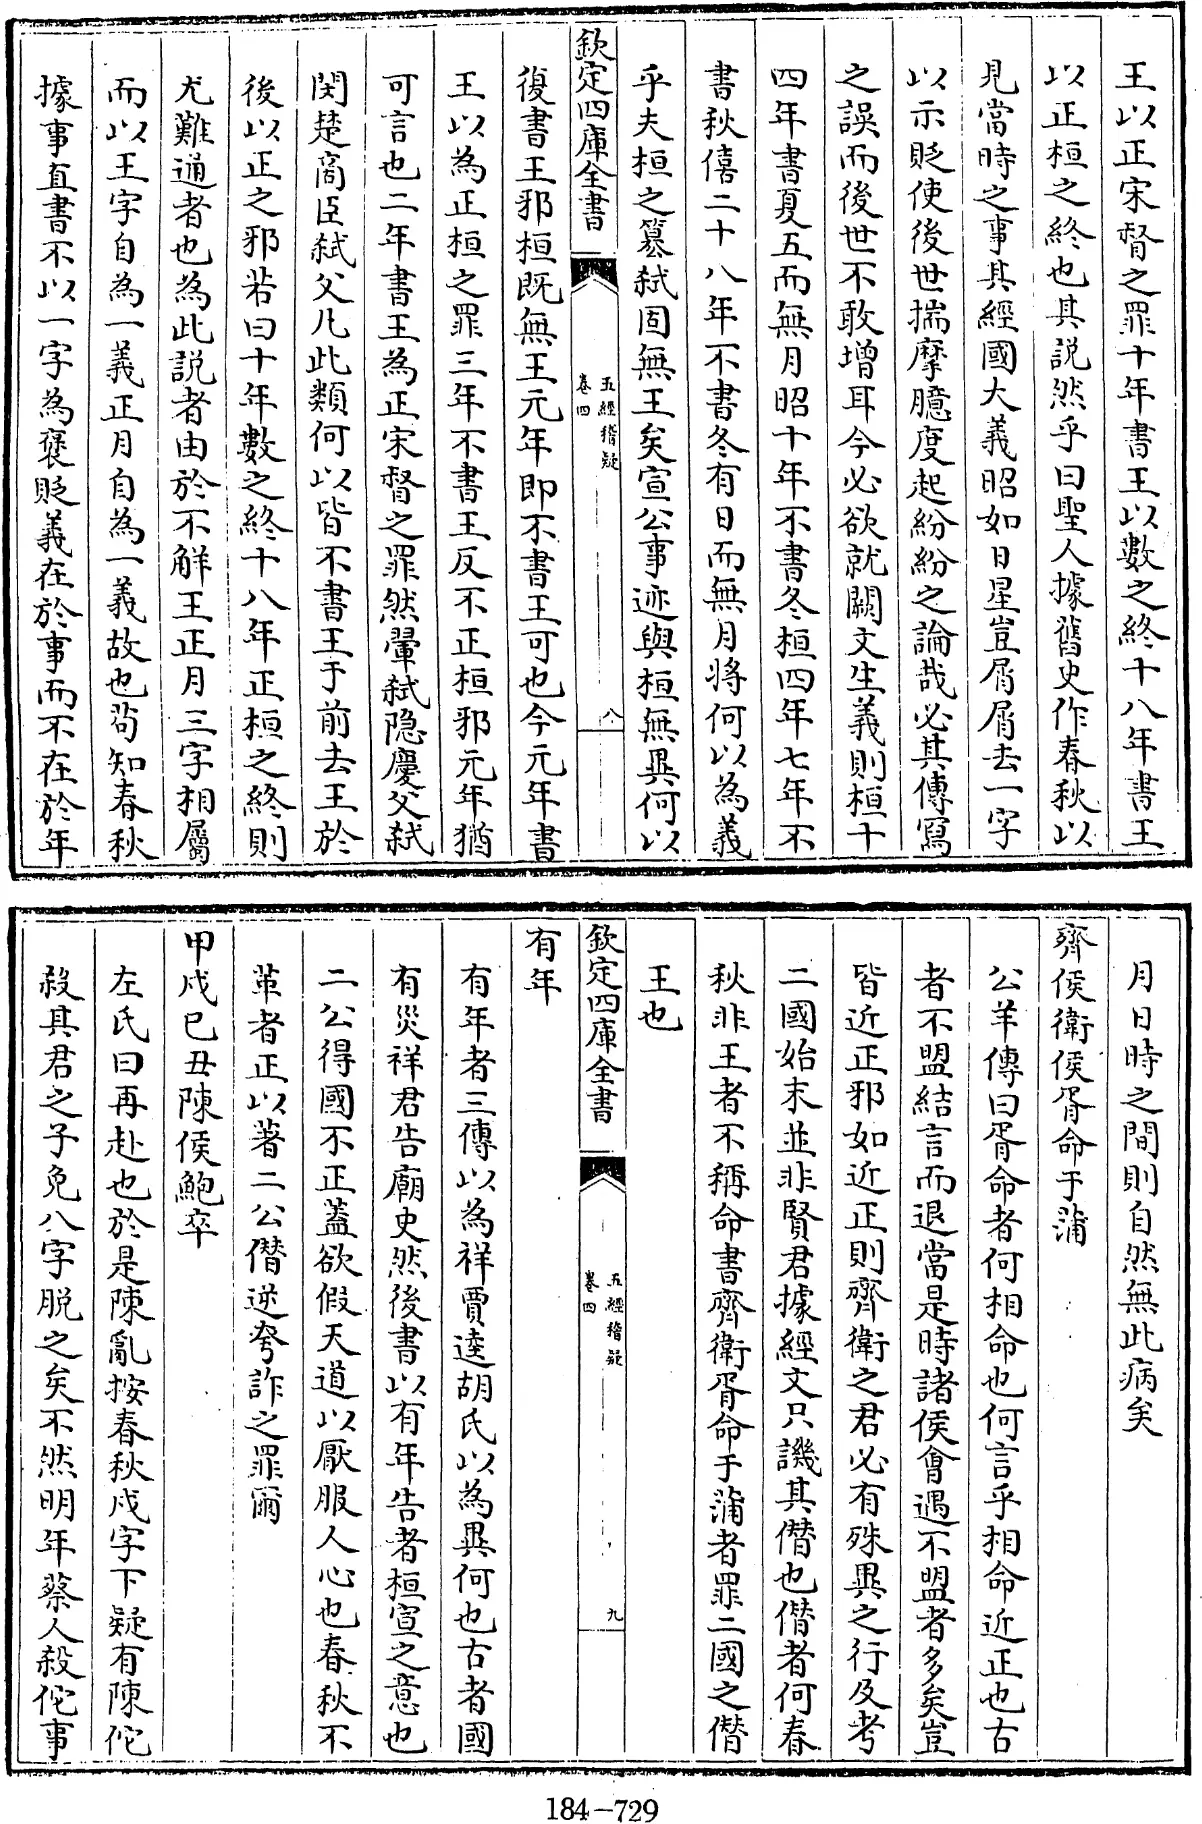 王以正宋督之罪十年書王以數之終十八年書王
以正桓之終也其説然乎曰聖人據舊史作春秋以
見當時之事其經國大義昭如日星豈屑屑去一字
以示貶使後世揣摩臆度起紛紛之論哉必其傳寫
之誤而後世不敢增耳今必欲就闕文生義則桓十
四年書夏五而無月昭十年不書冬桓四年七年不
書秋僖二十八年不書冬有日而無月將何以為義
乎夫桓之簒弑固無王矣宣公事迹與桓無異何以
欽定四庫全書
五經稽疑
卷四
八
復書王邪桓既無王元年即不書王可也今元年書
王以為正桓之罪三年不書王反不正桓邪元年猶
可言也二年書王為正宋督之罪然翬弑隐慶父弑
閔楚商臣弑父凡此類何以皆不書王于前去王於
後以正之邪若曰十年數之終十八年正桓之終則
尤難通者也為此説者由於不解王正月三字相屬
而以王字自為一義正月自為一義故也茍知春秋
據事直書不以一字為褒貶義在於事而不在於年
月日時之間則自然無此病矣
齊侯衛侯胥命于蒲
公羊傳曰胥命者何相命也何言乎相命近正也古
者不盟結言而退當是時諸侯會遇不盟者多矣豈
皆近正邪如近正則齊衛之君必有殊異之行及考
二國始末並非賢君據經文只譏其僣也僣者何春
秋非王者不稱命書齊衛胥命于蒲者罪二國之僣
王也
欽定四庫全書
五經稽疑
卷四
九
有年
有年者三傳以為祥賈逵胡氏以為異何也古者國
有災祥君告廟史然後書以有年告者桓宣之意也
二公得國不正蓋欲假天道以厭服人心也春秋不
革者正以著二公僣逆夸詐之罪爾
甲戍巳丑陳侯鮑卒
左氏曰再赴也於是陳亂按春秋戍字下疑有陳佗
殺其君之子免八字脱之矣不然明年蔡人殺佗事
184-729